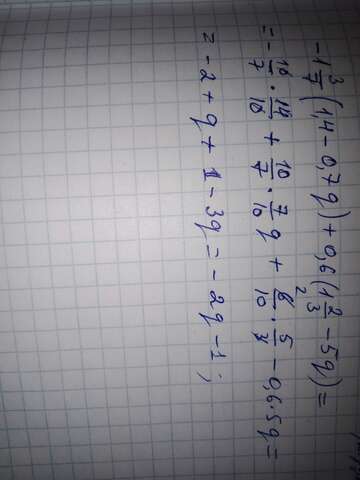 -1 3/7 (1,4 - 0,7q) + 0,6 (1 2/3 - 5q) =
= - 10/7 · 14/10 + 10/7 · 7/10 q + 6/10 · 5/3 - 0,6·5q =
= -2 + q + 1 - 3q = -2q - 1;